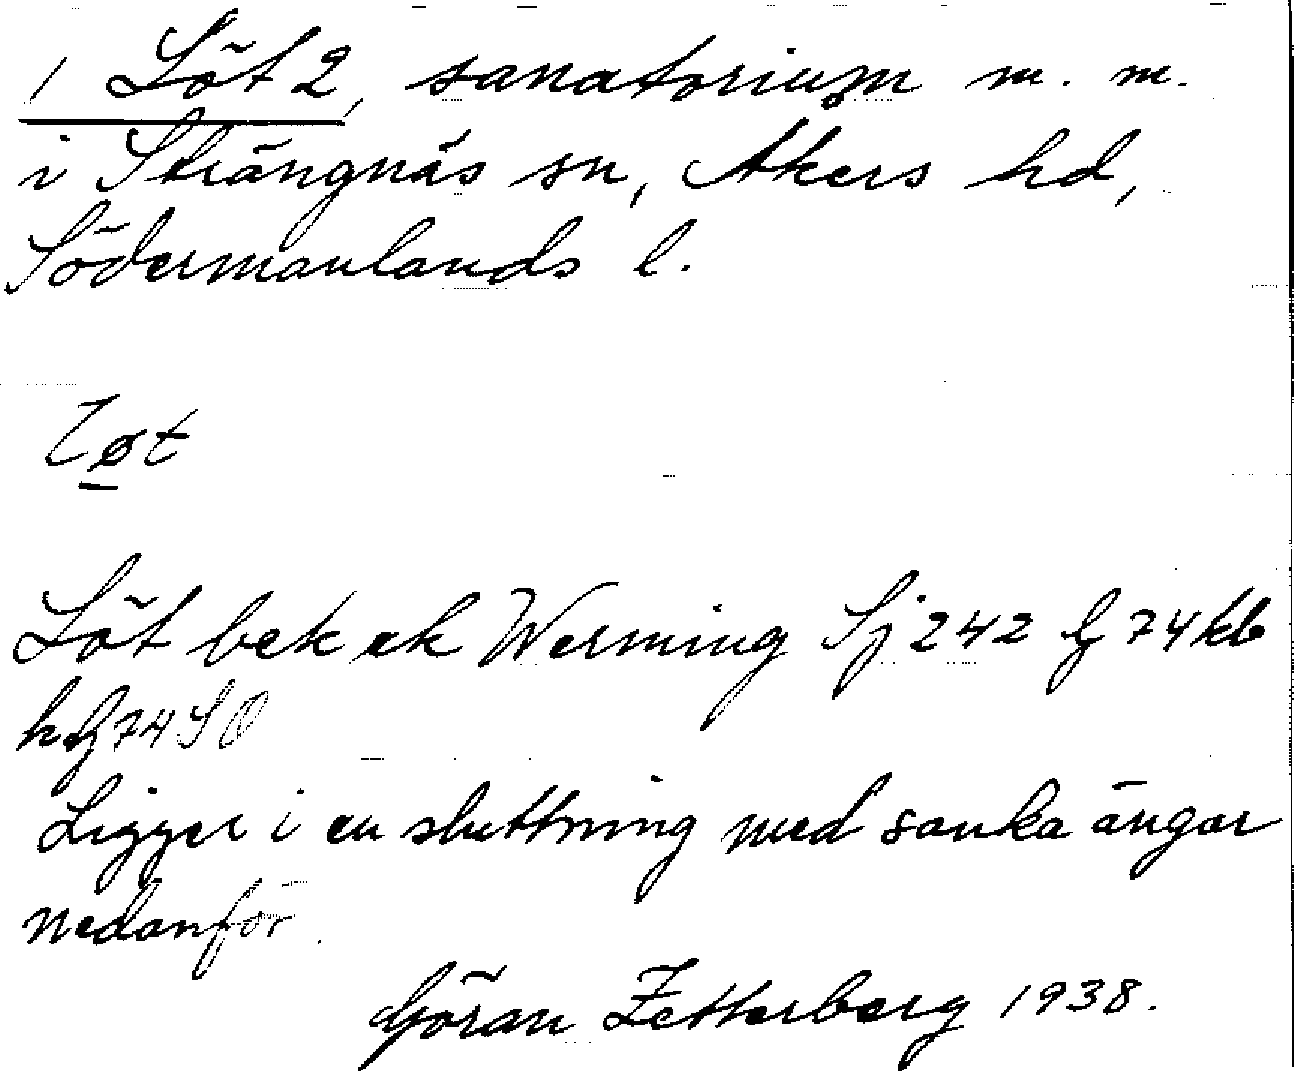 1 Löt 2, sanatorium m. m.
i Strängnäs sn, Åkers hd,
Södermanlands l.
Løt
Löt bek ek Werming Sj 242 G 74 kb
h G 74 S O
Ligger i en sluttning med sanka ängar
nedanför.
Göran Zetterberg 1938.